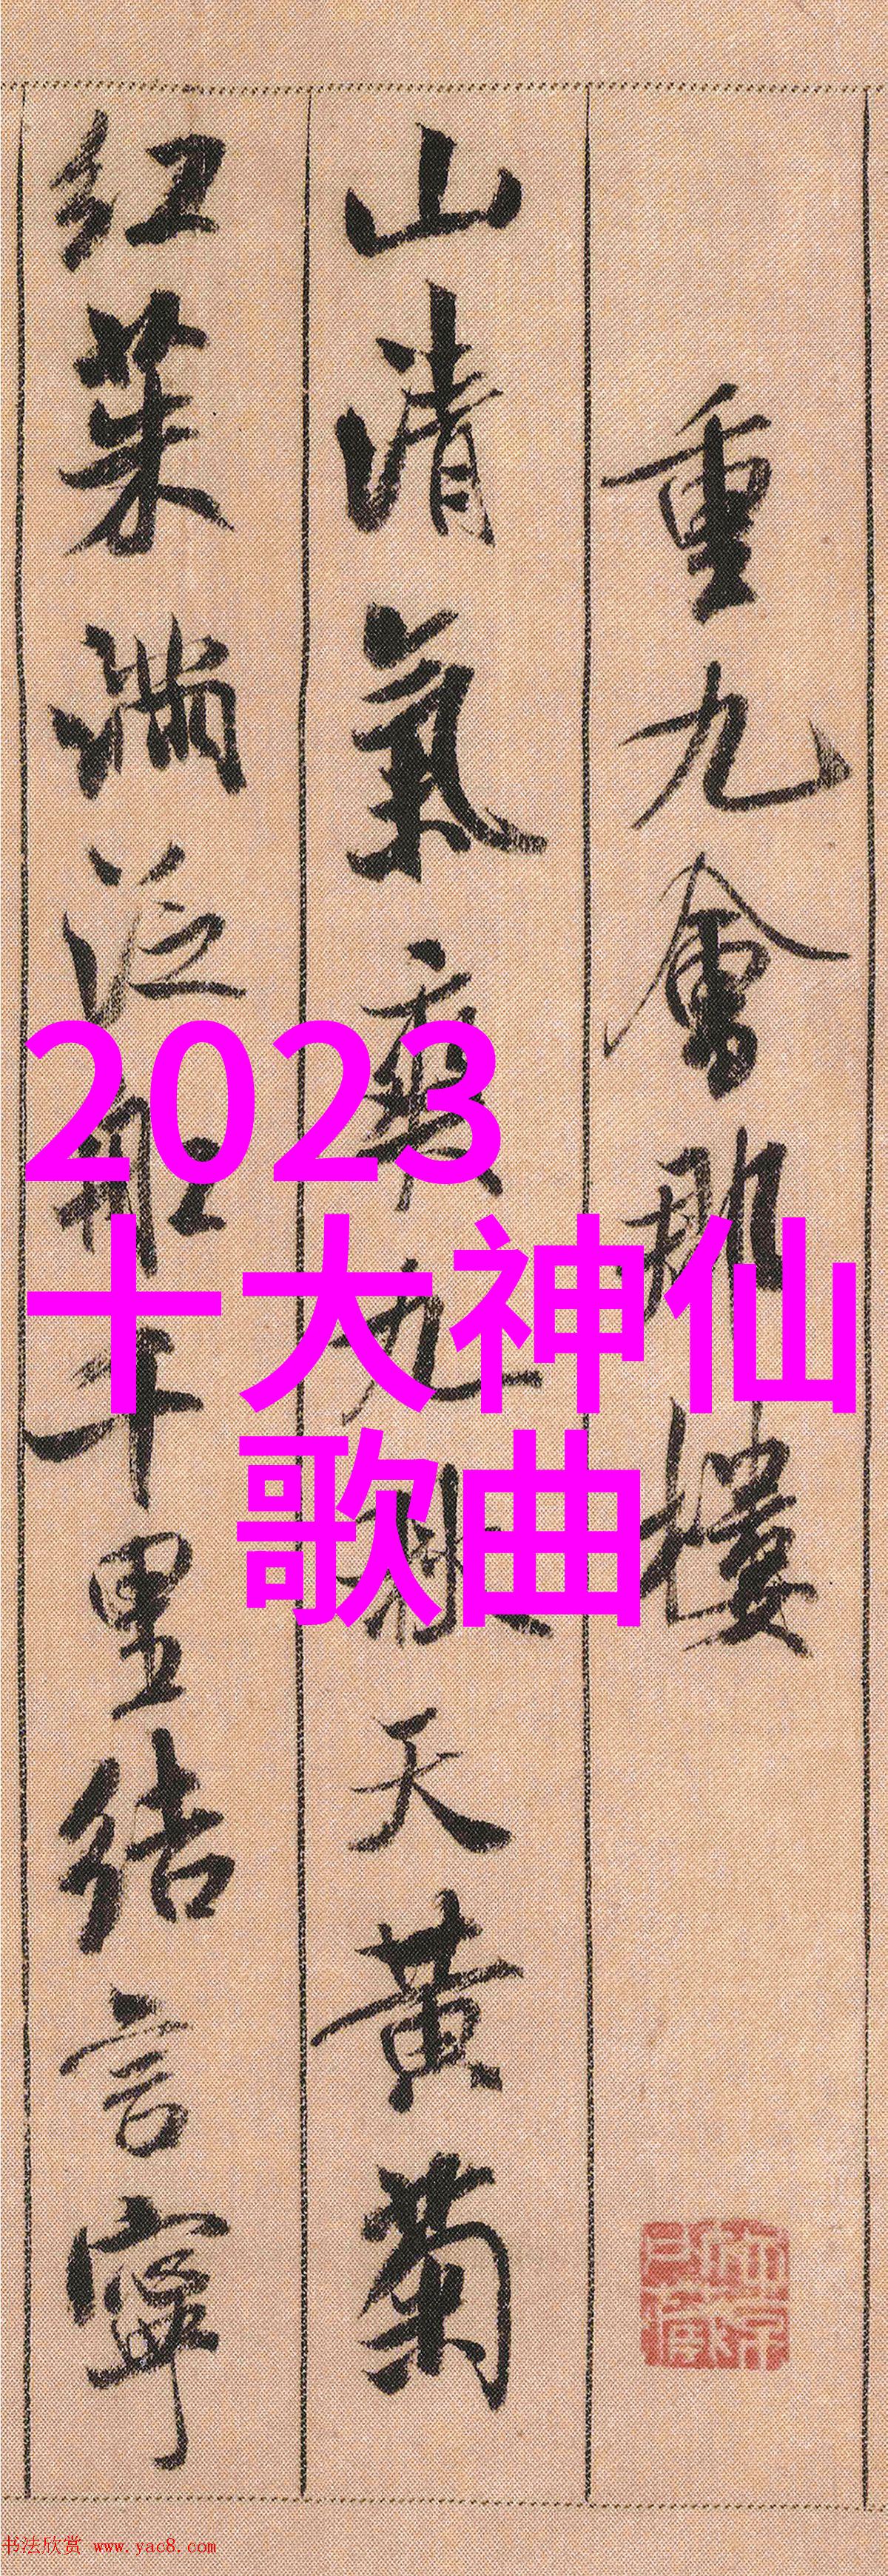 重九會郡樓
山清氣爽九秋天黄菊
红茱滿泛船千里結言寧
2023
十大神仙
歌曲
书法欣赏 www.yac8.com